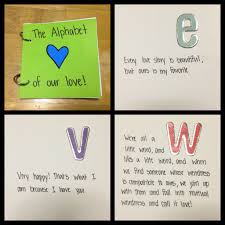 The Alphabet
of our love!
e
Every love story is beautiful,
but ours is my favorite
V
Very happy! That's what I
am because I have you.
W
We're all a
little weird, and
life's a little weird, and when
we find someone whose weirdness
is compatible to ours, we join up
with them and fall into mutual
weirdness and call it love!